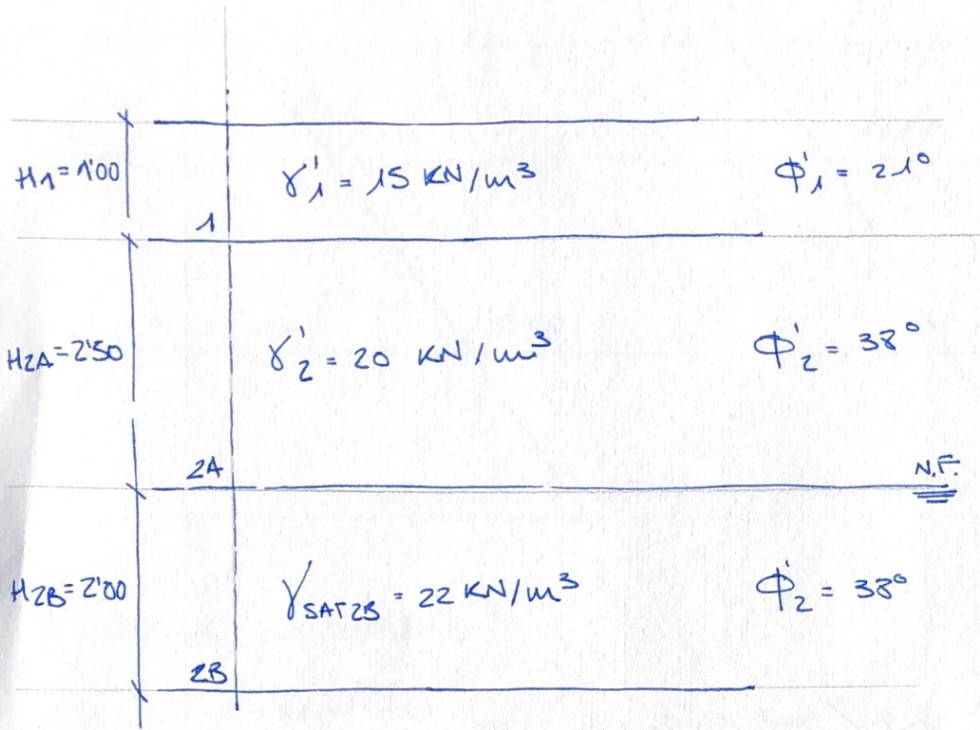 H1=1'00 γ'1 = 15 KN/m³ ϕ'1 = 21°
1
H2A=2'50 γ'2 = 20 KN/m³ ϕ'2 = 38°
2A N.F.
H2B=2'00 γSAT2B = 22 KN/m³ ϕ'2 = 38°
2B